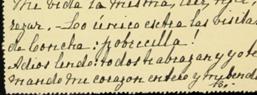 mi vida la misma, leer, y
rezar. - Lo único extra las visitas
de Concha: ¡pobrecilla!
Adios lindo: todos te abrazan y yo te
mando mi corazon entero y mi bendi